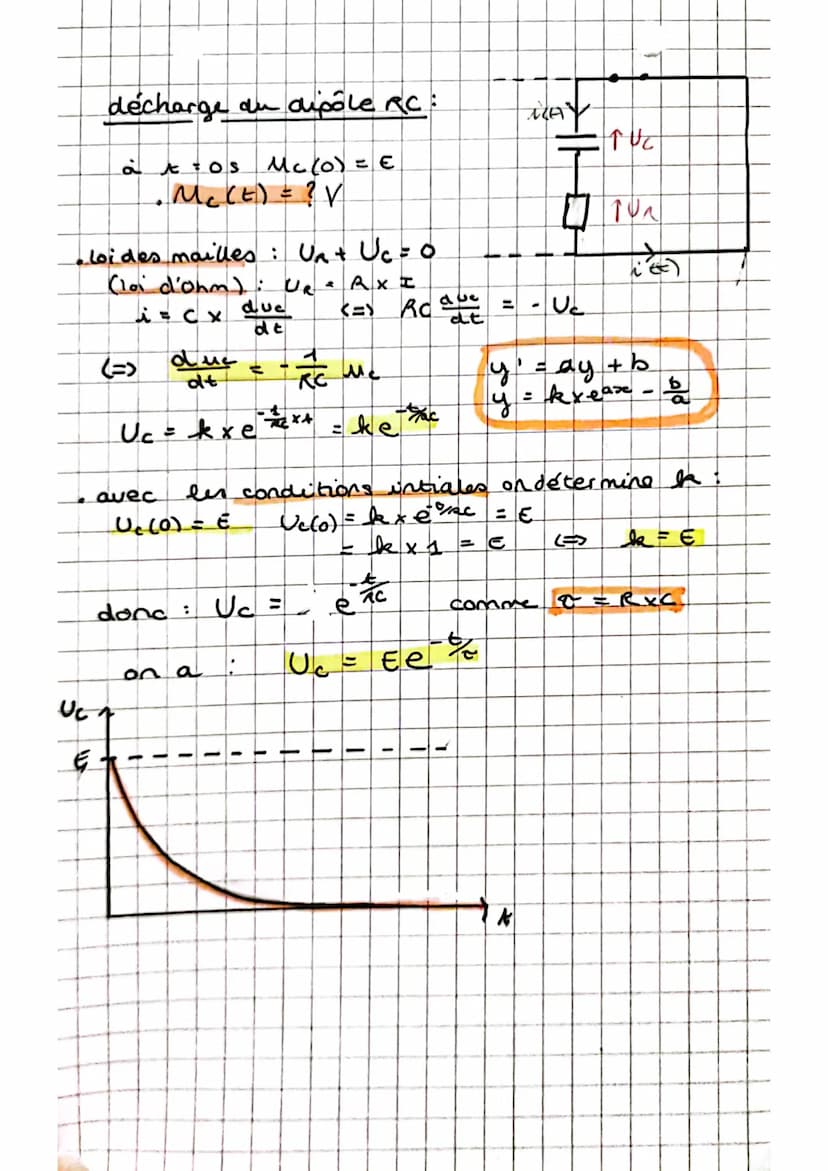 décharge du dipôle RC :
i(t)
↑ Uc
à t = 0s Uc(0) = E
. Uc(t) = ? V
↑ UR
. loi des mailles : UR + Uc = 0
i(t)
(loi d'ohm) : UR = R x I
i = C x duc/dt <=> RC duc/dt = - Uc
<=> duc/dt = - 1/RC uc
y' = ay + b
y = k x e^ax - b/a
Uc = k x e^-1/RC x t = ke^-t/RC
. avec les conditions intiales on détermine k :
Uc(0) = E Uc(0) = k x e^-0/RC = E
= k x 1 = E <=> k = E
donc : Uc = e^-t/RC comme τ = R x C
on a : Uc = Ee^-t/τ
Uc
E
t